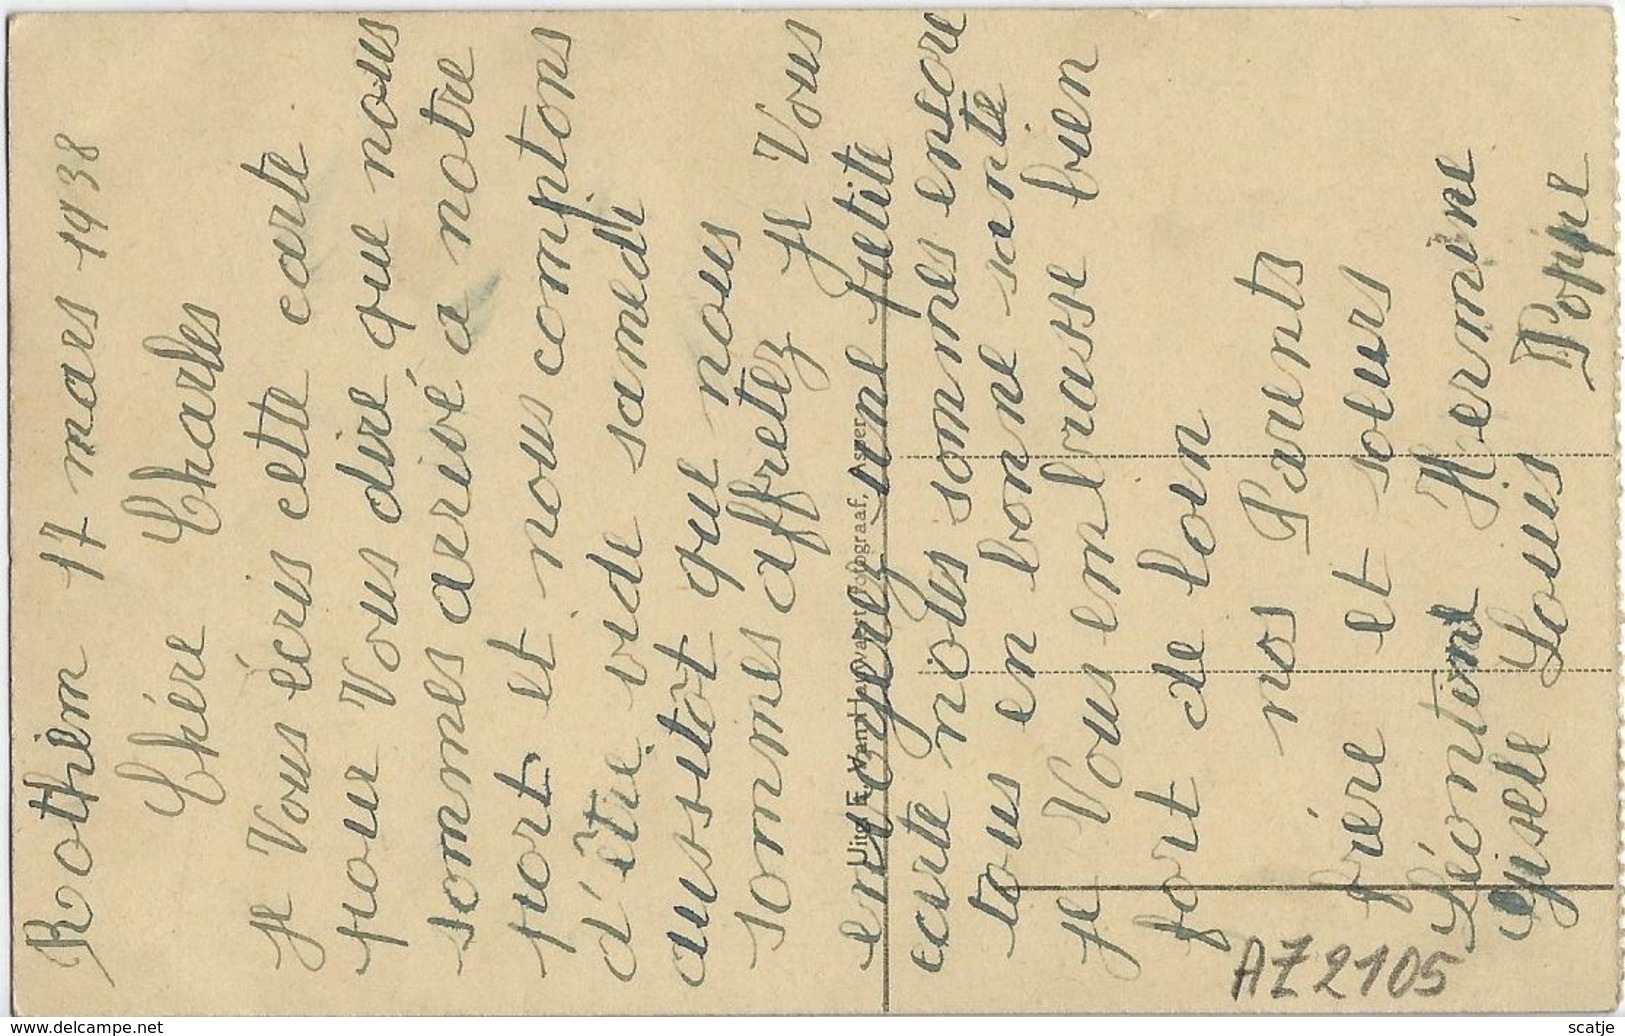 Rothem 17 mars 1938
Chére Charles
je Vous écris cette carte
pour Vous dire que nous
sommes arrivé a notre
port et nous comptons
d'être vide samedi
aussitôt que nous
sommes affretez je Vous
enverez une petite
carte nous sommes ensore
tous en bonne sante
je Vous embrasse bien
fort de loin
nos Parents
frére et soeurs
Léontine Hermine
Gisele Louis Poppe
Uitg. E. Van fotograaf, Asper
AZ2105
www.delcampe.net
scatje